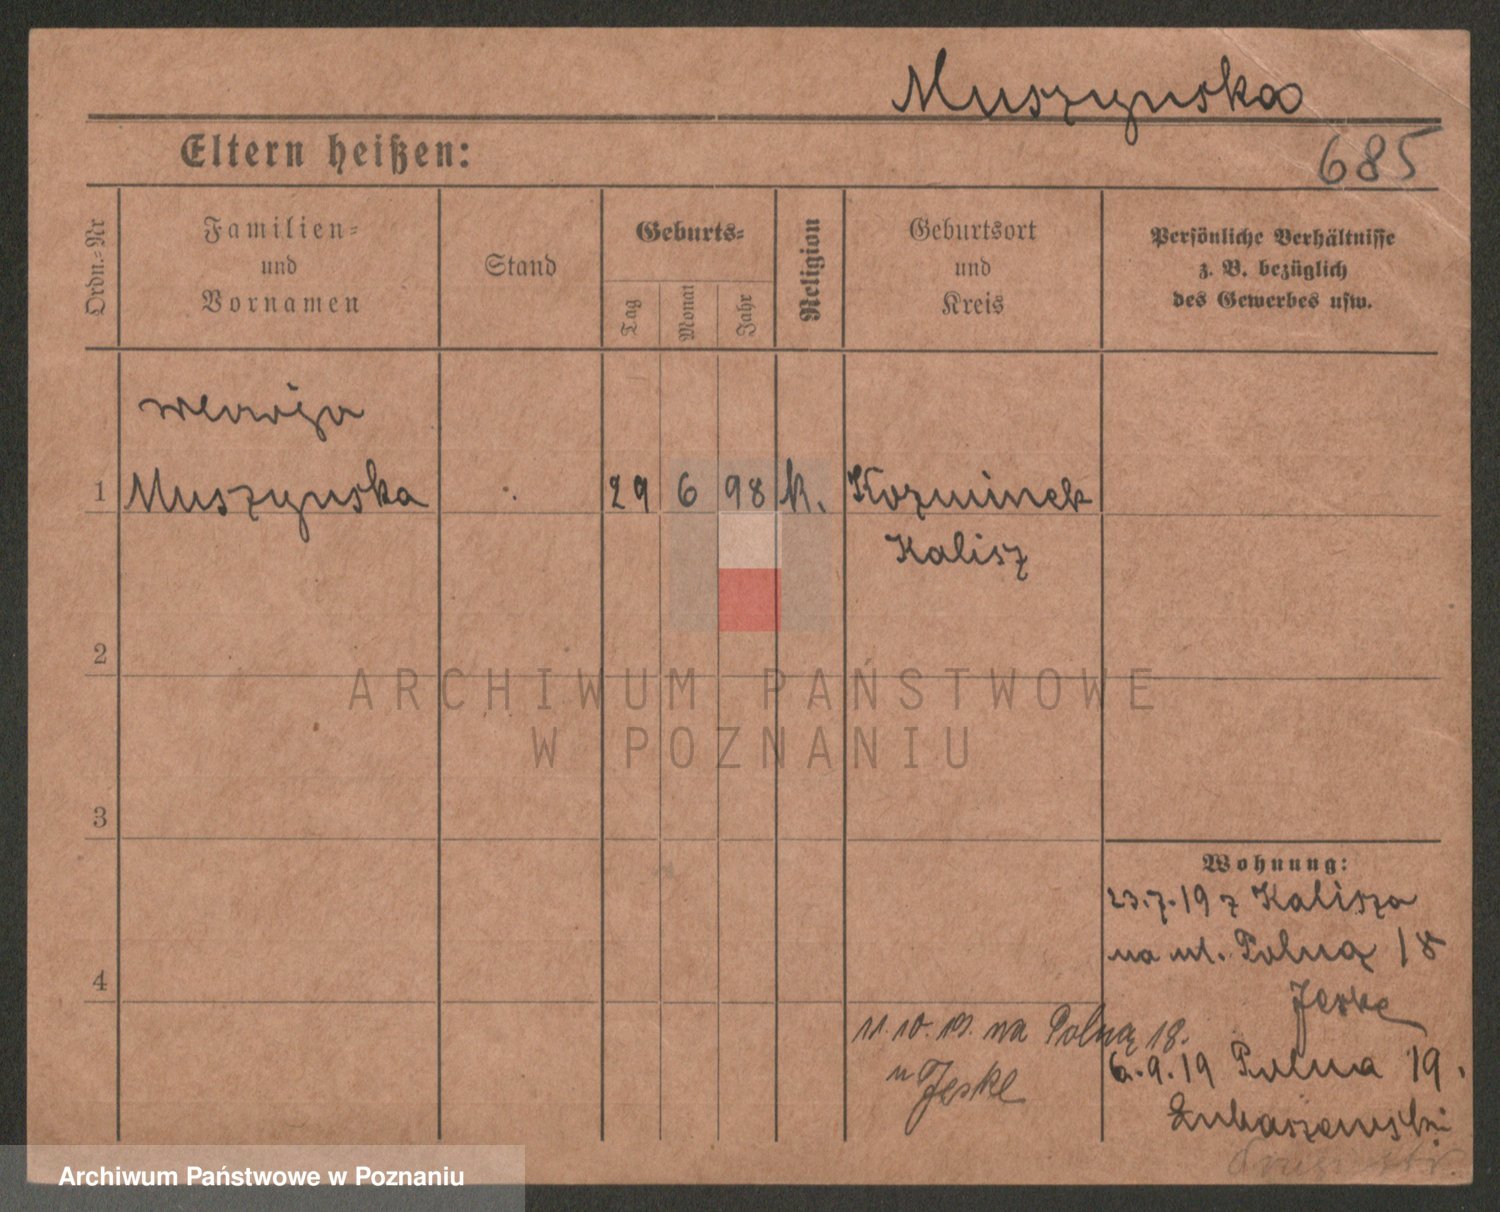 Muszynska
685
Eltern heißen:
Ordn.-Nr
Familien-
und
Vornamen
Stand
Geburts-
Tag
Monat
Jahr
Religion
Geburtsort
und
Kreis
Persönliche Verhältnisse
z. B. bezüglich
des Gewerbes usw.
Marja
1 Muszynska 29 6 98 K. Kozminek
Kalisz
2
ARCHIWUM PAŃSTWOWE
W POZNANIU
3
Wohnung:
23.7.19 z Kalisza
na ul. Polną 18
Jeske
4
11.10.19. na Polną 18.
u Jeske
6.9.19 Polna 19.
Łukaszewski
Archiwum Państwowe w Poznaniu